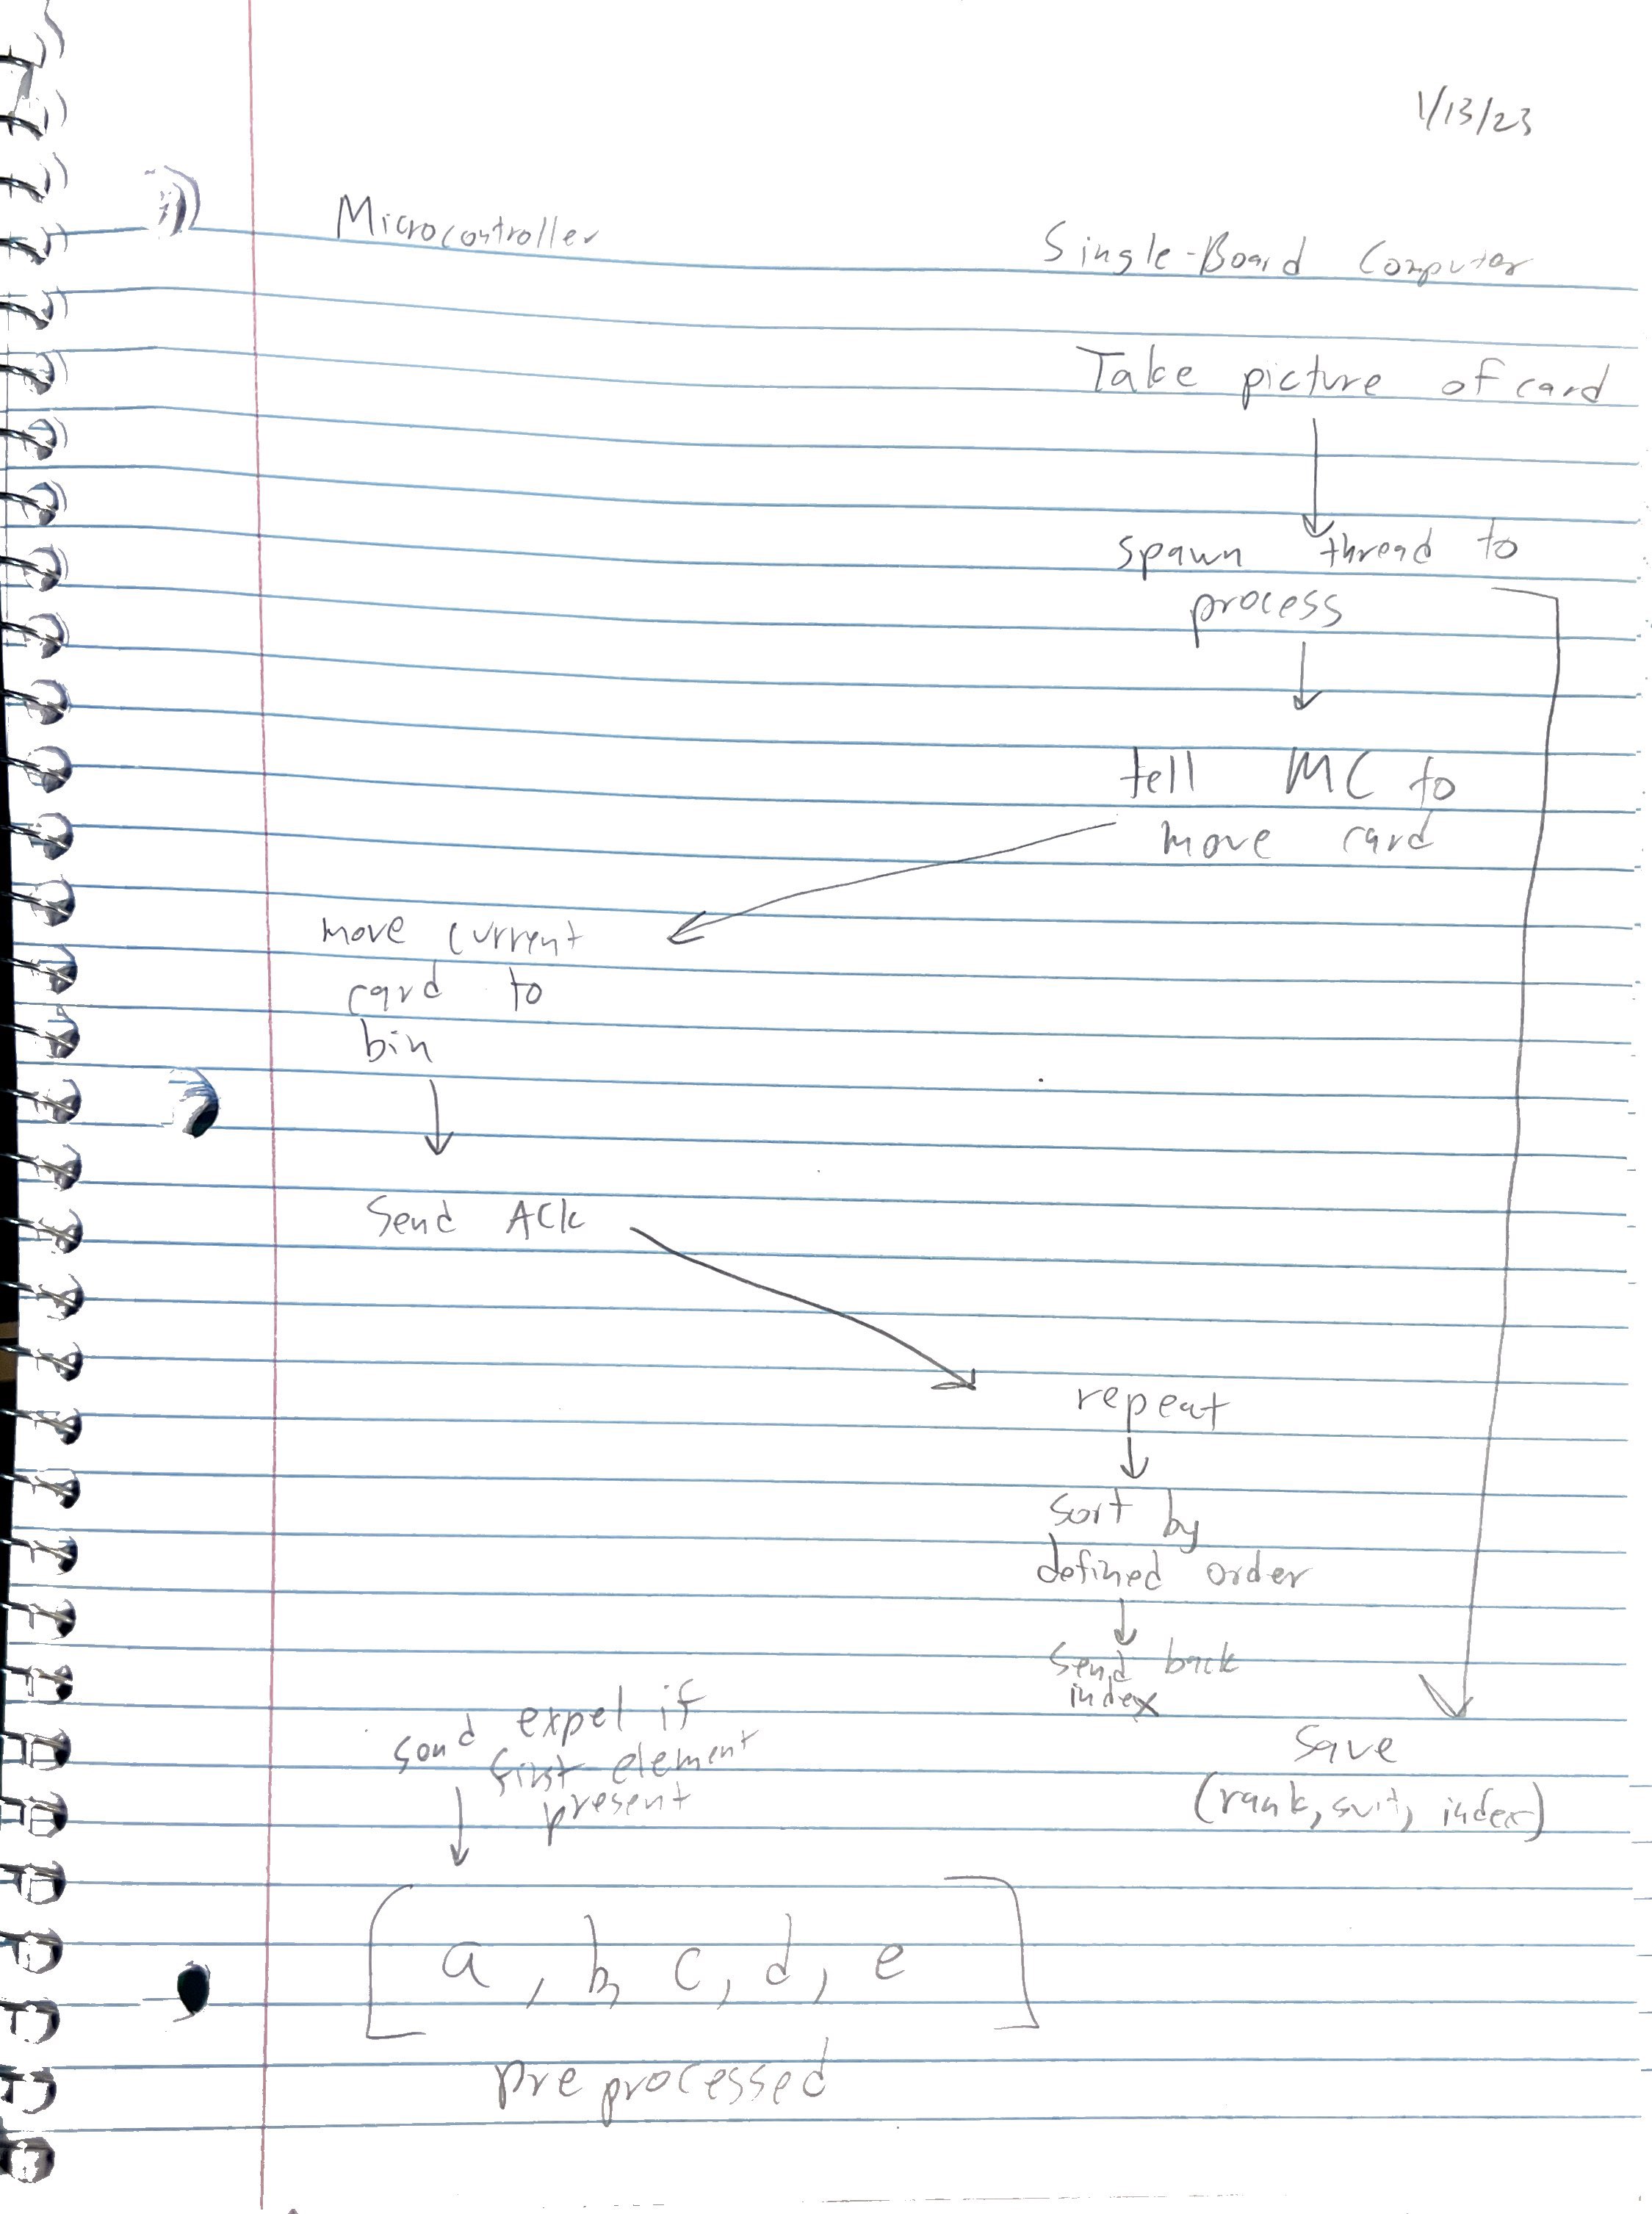 1/13/23
Microcontroller
Single-Board Computer
Take picture of card
spawn thread to
process
tell MC to
move card
move current
card to
bin
Send ACK
repeat
sort by
defined order
send back
index
send expel if
first element
present
Save
(rank, suit, index)
[a, b, c, d, e]
preprocessed